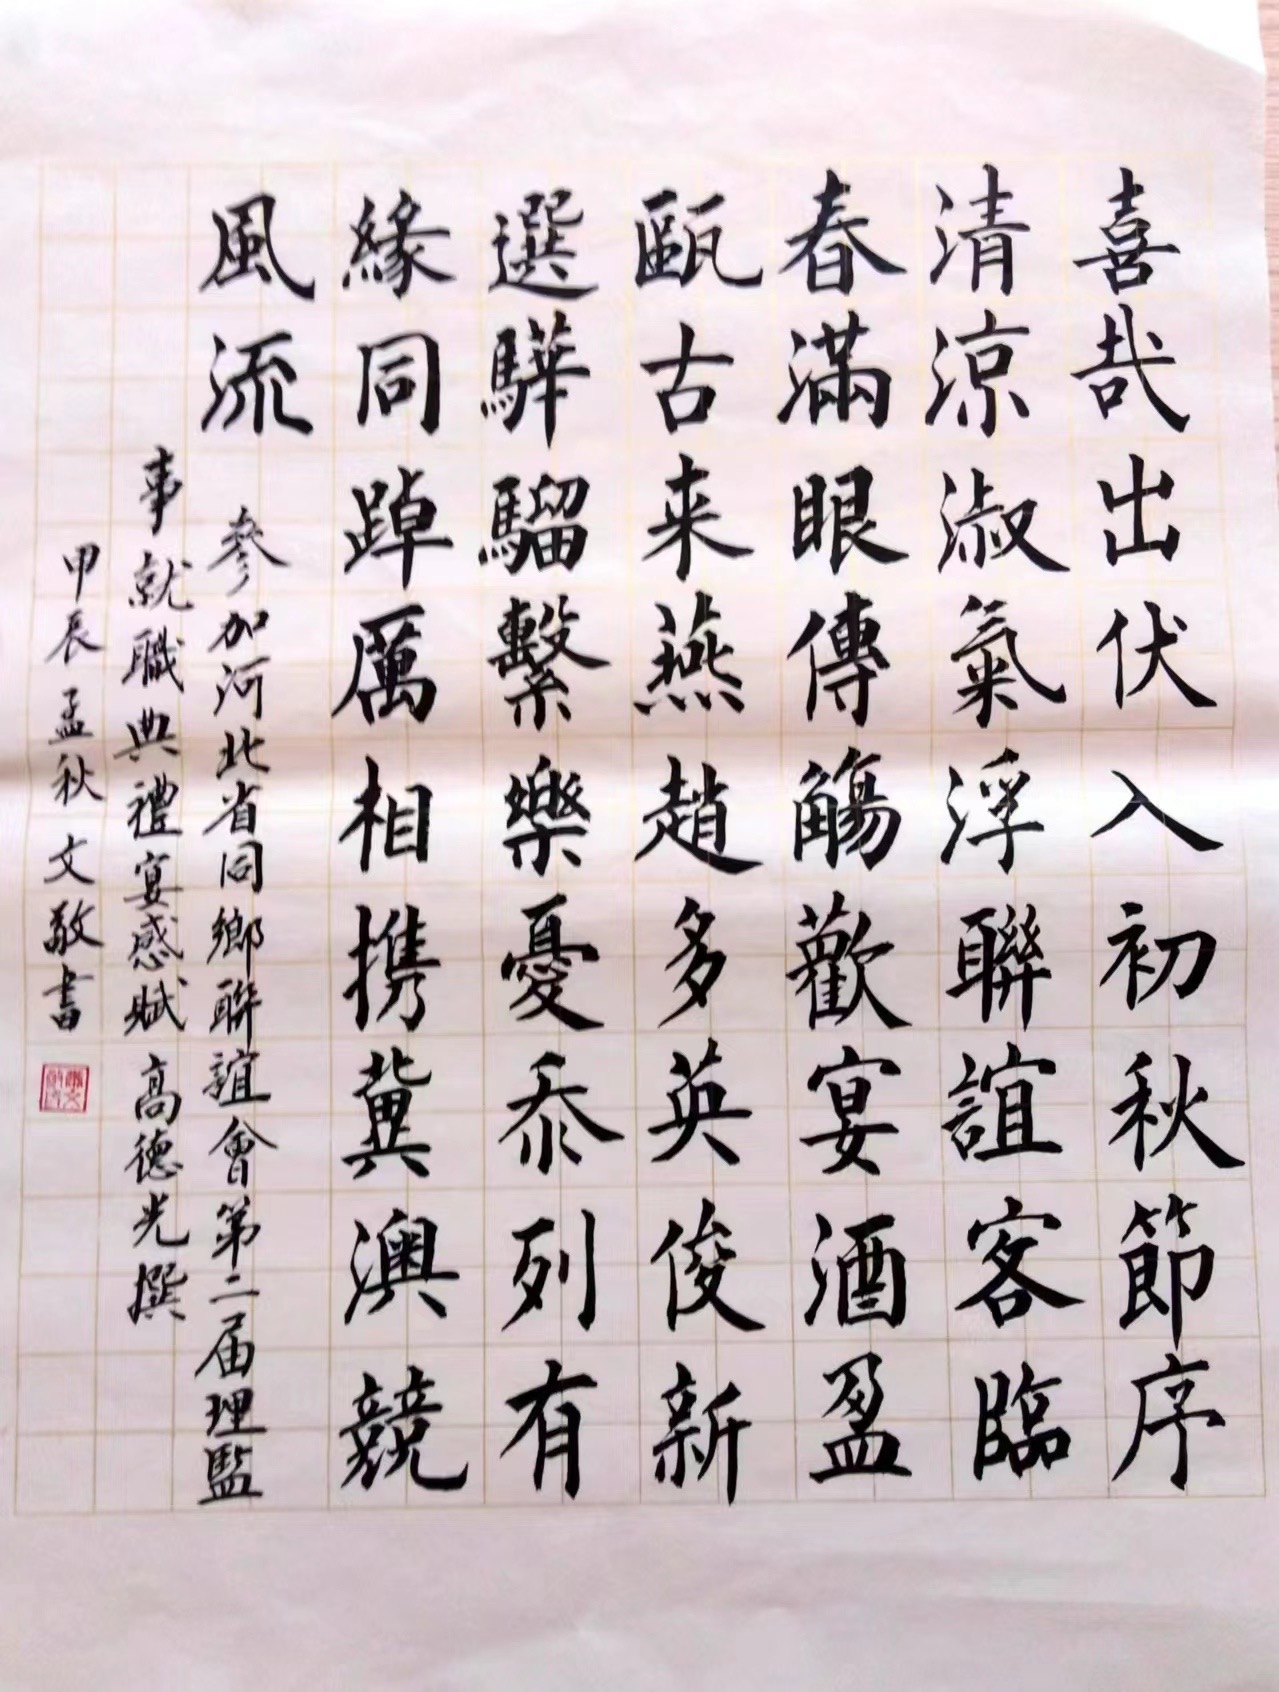 喜哉出伏入初秋節序
清涼淑氣浮聯誼客臨
春滿眼傳觴歡宴酒盈
甌古来燕趙多英俊新
選驊騮繫樂憂忝列有
緣同踔厲相携冀澳競
風流
參加河北省同鄉聯誼會第二届理監
事就職典禮宴感賦 高德光撰
甲辰孟秋文敬書